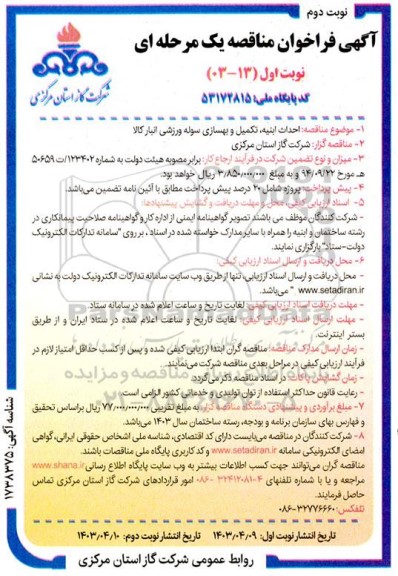 نوبت دوم
آگهی فراخوان مناقصه یک مرحله ای
نوبت اول (۱۳-۰۳)
کد پایگاه ملی: ۵۳۱۷۲۸۱۵
شرکت گاز استان مرکزی
۱- موضوع مناقصه: احداث ابنیه، تکمیل و بهسازی سوله ورزشی انبار کالا
۲- مناقصه گزار: شرکت گاز استان مرکزی
۳- میزان و نوع تضمین شرکت در فرآیند ارجاع کار: برابر مصوبه هیئت دولت به شماره ۱۲۳۴۰۲/ت ۵۰۶۵۹
هـ مورخ ۹۴/۰۹/۲۲ و به مبلغ ۳/۸۵۰/۰۰۰/۰۰۰ ریال خواهد بود.
۴- پیش پرداخت: پروژه شامل ۲۰ درصد پیش پرداخت مطابق با آئین نامه تضمین می‌باشد.
۵- اسناد ارزیابی کیفی، محل و مهلت دریافت و گشایش پیشنهادها:
- شرکت کنندگان موظف می باشند تصویر گواهینامه ایمنی از اداره کار و گواهینامه صلاحیت پیمانکاری در
رشته ساختمان و ابنیه را همراه با سایر مدارک خواسته شده در اسناد ، بر روی "سامانه تدارکات الکترونیک
دولت-ستاد" بارگزاری نمایند.
۶- محل دریافت و ارسال اسناد ارزیابی کیفی:
- محل دریافت و ارسال اسناد ارزیابی، تنها از طریق وب سایت سامانه تدارکات الکترونیک دولت به نشانی
www.setadiran.ir " می‌باشد.
- مهلت دریافت اسناد ارزیابی کیفی: لغایت تاریخ و ساعت اعلام شده در سامانه ستاد.
- مهلت ارسال اسناد ارزیابی کیفی: لغایت تاریخ و ساعت اعلام شده در ستاد ایران و از طریق
بستر اینترنت.
- زمان ارسال مدارک مناقصه: مناقصه گران ابتدا ارزیابی کیفی شده و پس از کسب حداقل امتیاز لازم در
فرآیند ارزیابی کیفی در مراحل بعدی مناقصه شرکت می‌نمایند.
- زمان گشایش پاکات: در اسناد مناقصه ذکر می‌گردد.
- رعایت قانون حداکثر استفاده از توان تولیدی و خدماتی کشور الزامی است.
۷- مبلغ برآوردی و پیشنهادی دستگاه مناقصه گزار: به مبلغ تقریبی ۷۷/۰۰۰/۰۰۰/۰۰۰ ریال براساس تحقیق
و فهارس بهای سازمان برنامه و بودجه، رسته ساختمان سال ۱۴۰۳ می‌باشد.
۸- شرکت کنندگان در مناقصه می‌بایست دارای کد اقتصادی، شناسه ملی اشخاص حقوقی ایرانی، گواهی
امضای الکترونیکی سامانه www.setadiran.ir و کد کاربری پایگاه ملی مناقصات باشند.
مناقصه گران می‌توانند جهت کسب اطلاعات بیشتر به وب سایت پایگاه اطلاع رسانی www.shana.ir
مراجعه و یا با شماره تلفنهای ۴-۳۲۴۱۲۰۸۱ -۰۸۶ امور قراردادهای شرکت گاز استان مرکزی تماس
حاصل فرمایند.
تلفکس: ۳۲۷۷۶۶۶۰-۰۸۶
تاریخ انتشار نوبت اول: ۱۴۰۳/۰۴/۰۹ تاریخ انتشار نوبت دوم: ۱۴۰۳/۰۴/۱۰
روابط عمومی شرکت گاز استان مرکزی
شناسه آگهی: ۱۷۳۸۳۷۵